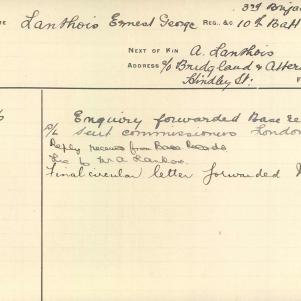 3rd Brigad
Lanthois Ernest George REG. &C 10th Batt
NEXT OF KIN A. Lanthois
ADDRESS c/o Bridgland &
Hindley St.
Enquiry forwarded Base
P/L sent commissioners London
Reply received from Base Records
to Mr A Lanthois
Final circular letter forwarded